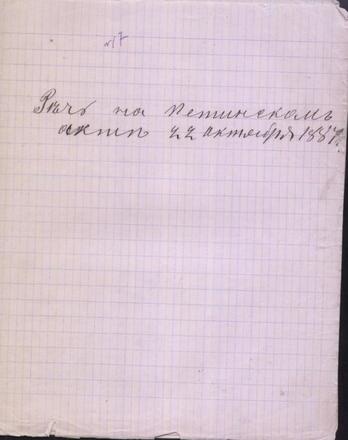 № 7
Рѣчь на Петинскомъ
актѣ 22 октября 1887